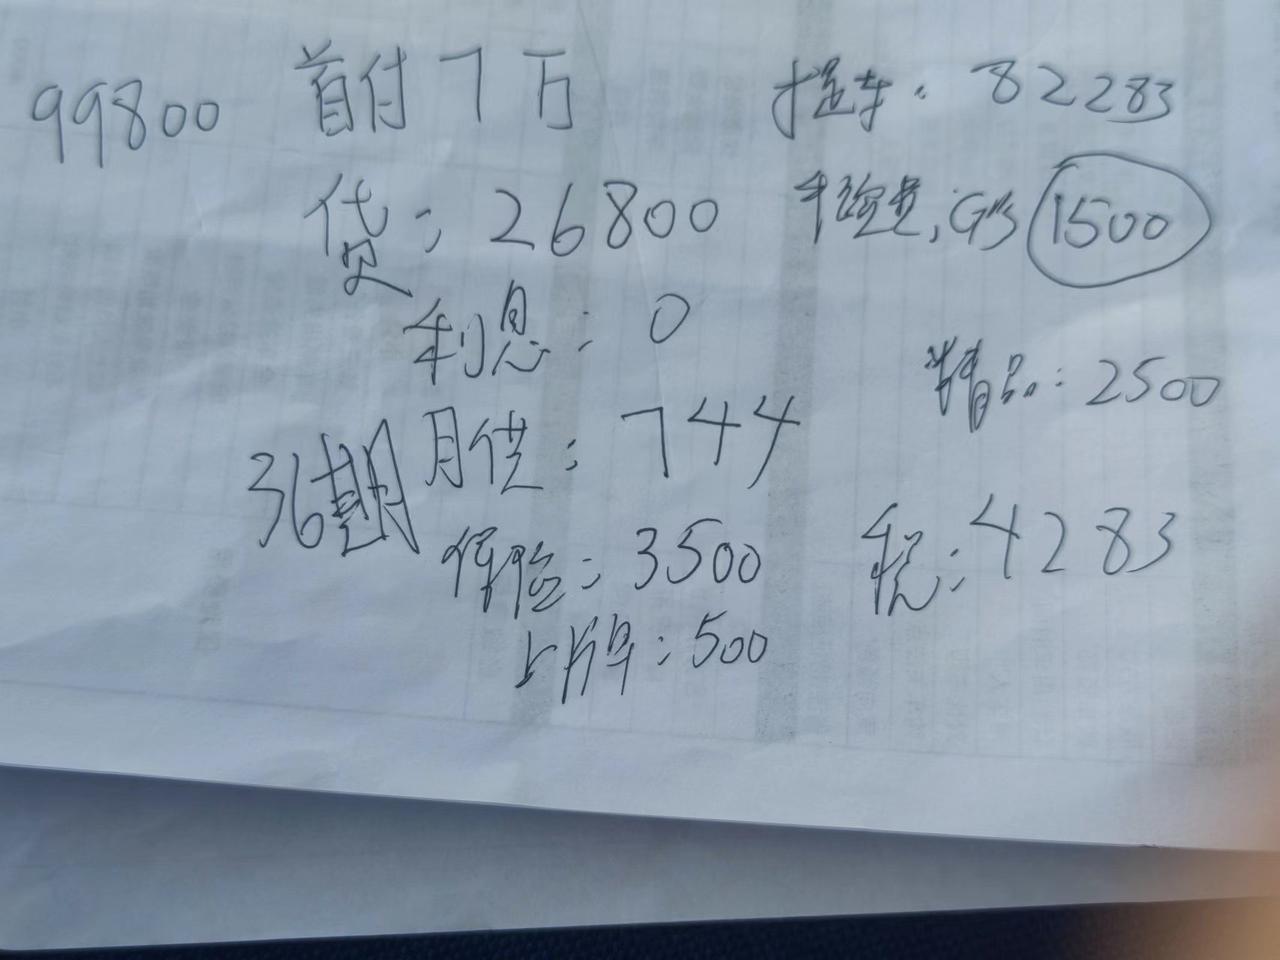 99800 首付7万 提车: 82283
贷: 26800 手续费, GPS 1500
利息: 0
精品: 2500
36期 月供: 744
保险: 3500 税: 4283
上牌: 500